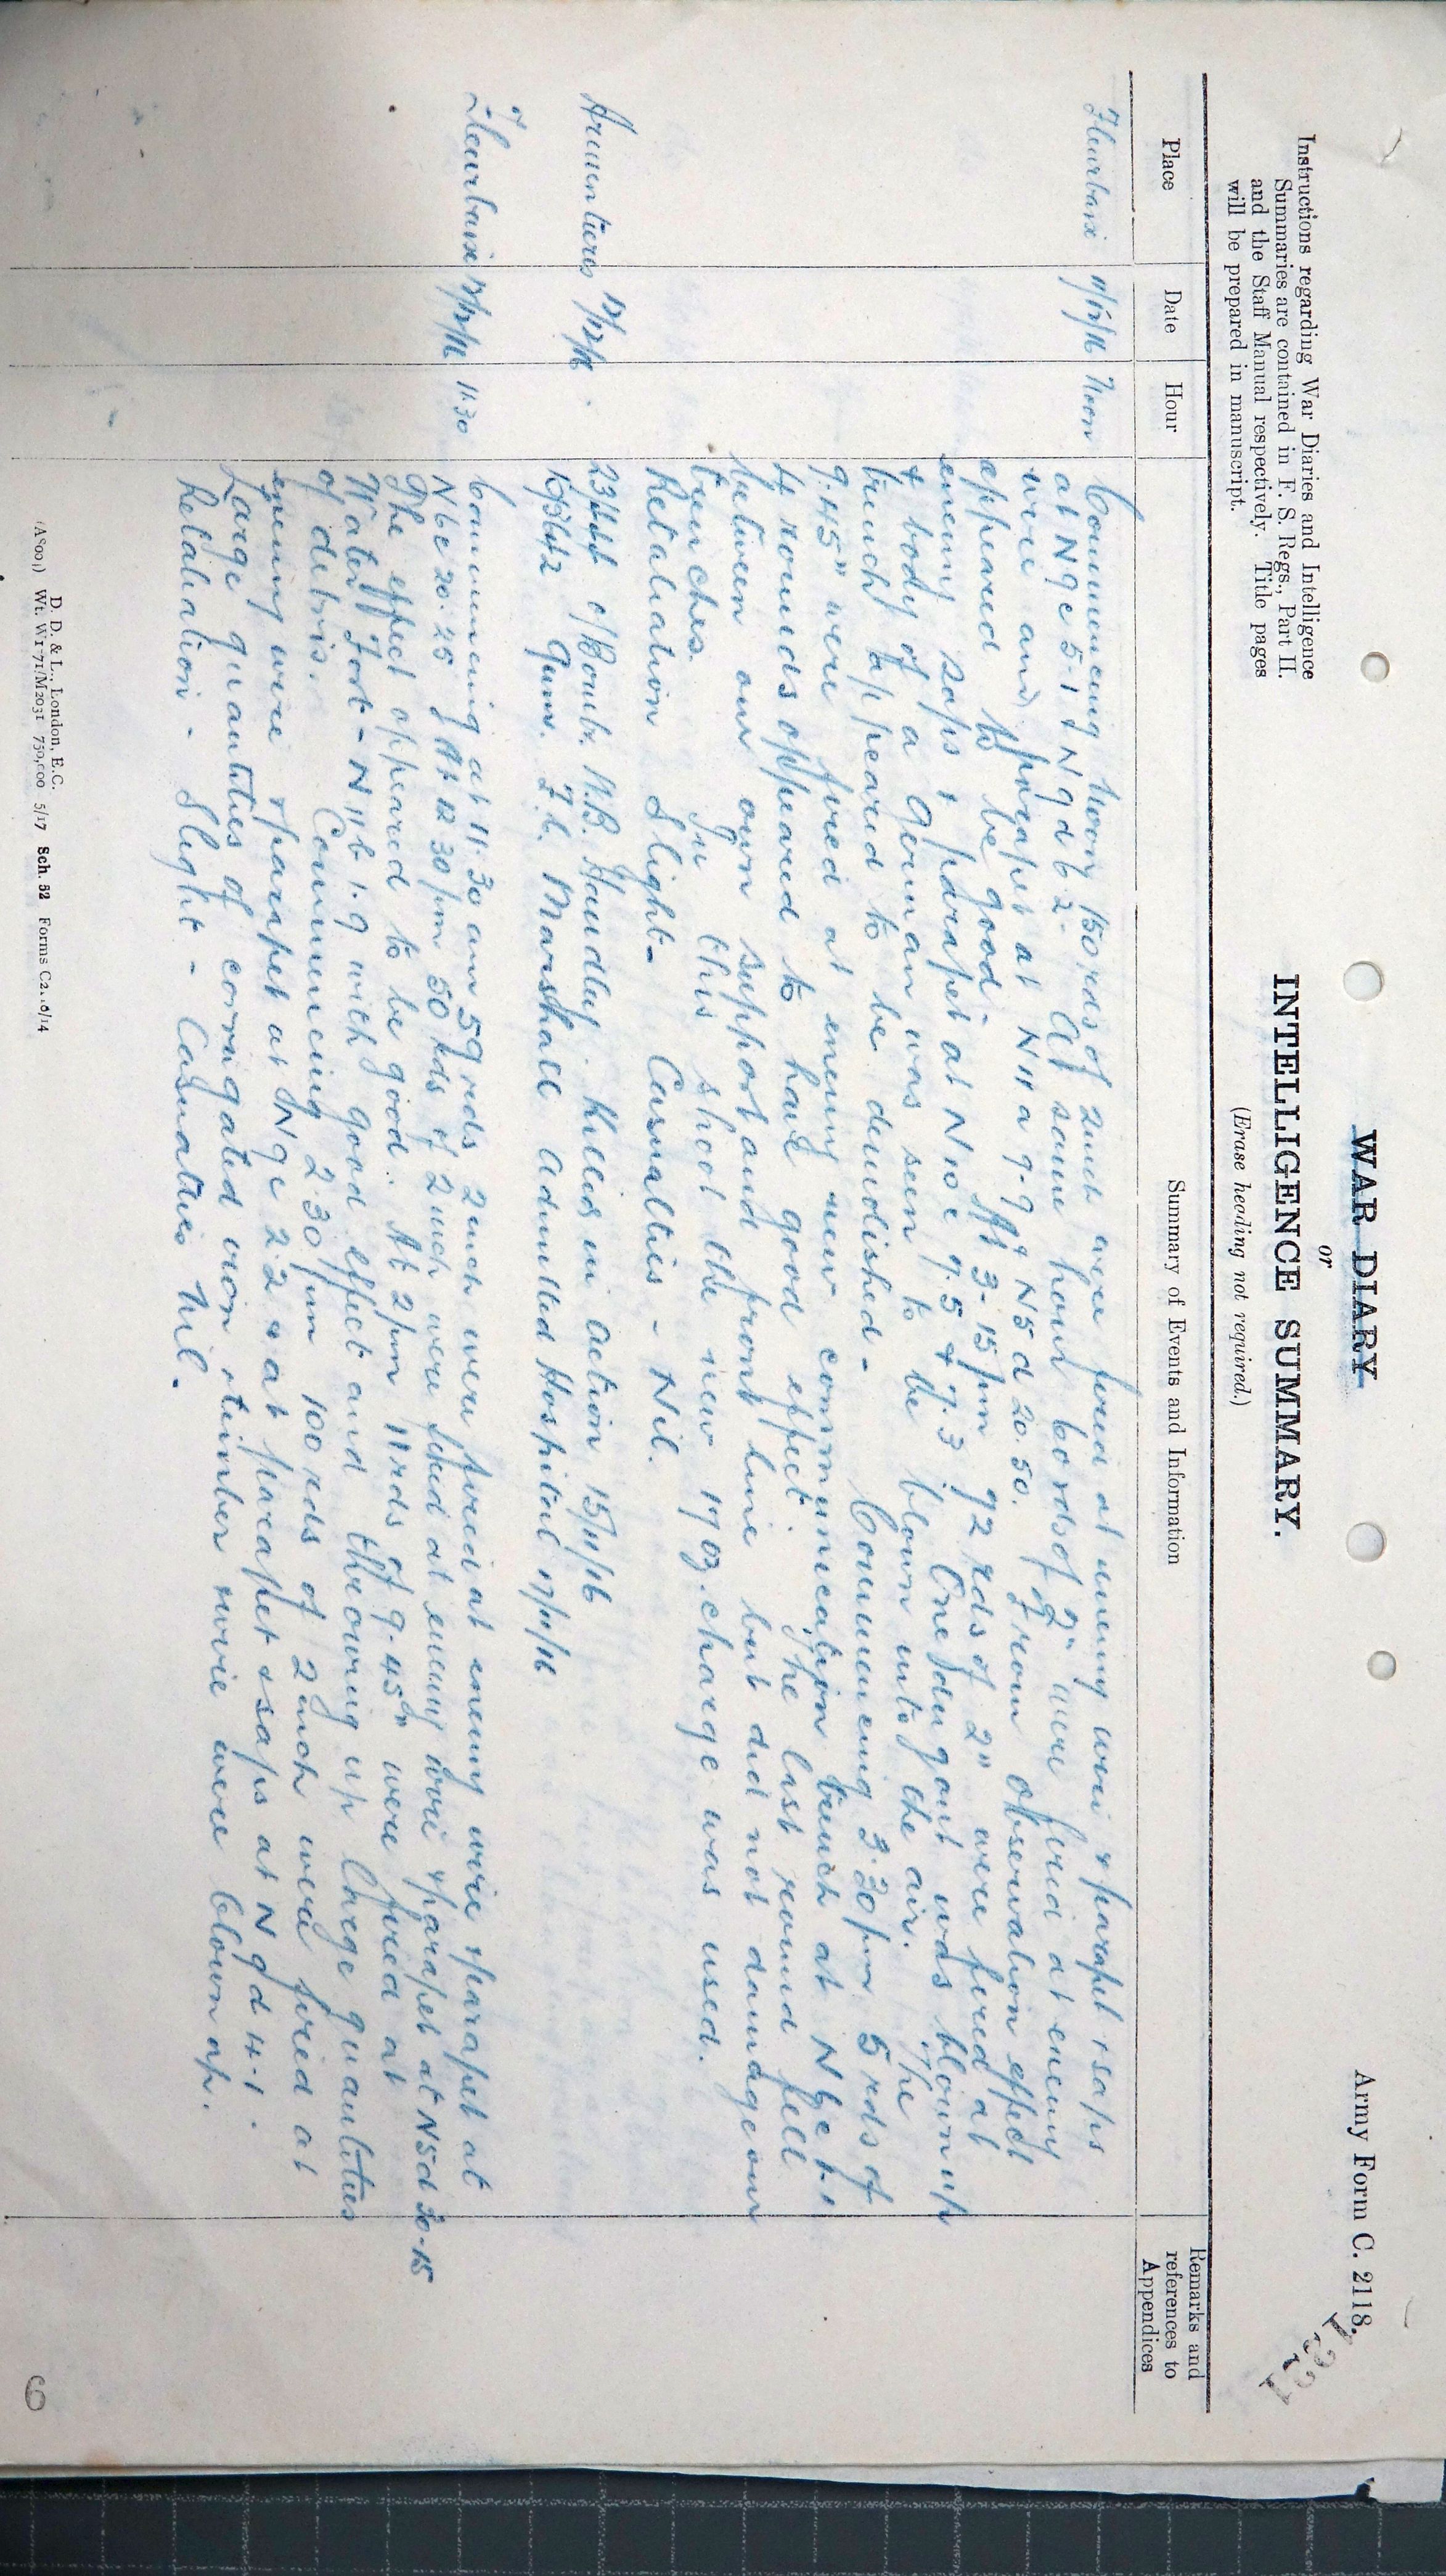 Army Form C. 2118.
WAR DIARY
or
INTELLIGENCE SUMMARY.
(Erase heading not required.)
Instructions regarding War Diaries and Intelligence
Summaries are contained in F. S. Regs., Part II.
and the Staff Manual respectively. Title pages
will be prepared in manuscript.
Place
Date
Hour
Summary of Events and Information
Remarks and
references to
Appendices
Fleurbaix 11/12/16 Noon Commencing noon 150 rds of 2 inch were fired at enemy wire & parapet & saps
at N9c 5.1 & N9d 6 2. At same hour 60 rds of 2" were fired at enemy
wire and parapet at N11a 9.9 & N5d 20.50. From observation effect
appeared to be good. At 3-15 pm 92 rds of 2" were fired at
enemy saps & parapet at N10c 9.5 & 7.3. One dug out was blown up
& body of a German was seen to be blown into the air. The
trench appeared to be demolished - Commencing 3.30 pm 5 rds of
9.45" were fired at enemy new communication trench at
4 rounds appeared to have good effect. The last round fell
between our own support and front line but did not damage our
trenches. In this shoot the new 17 oz. charge was used.
Retaliation Slight - Casualties - Nil.
Armentieres 12/12/16. c/Bombr. N.B. Handley Killed in Action 15/11/16
Gunr. F.C. Marshall Admitted Hospital 17/11/16
Fleurbaix 12/12/16 11.30 Commencing at 11 30 am 59 rds 2 inch were fired at enemy wire & parapet at
N6c 20.25 At 12 30 pm 50 rds of 2 inch were fired at enemy wire & parapet at N5d 20.15
The effect appeared to be good. At 2 pm 11 rds of 9.45" were fired at
Water Fork - N11b 1.9 with good effect and throwing up large quantities
of debris. Commencing 2.30 pm 100 rds of 2 inch were fired at
enemy wire & parapet at N9c 2.2 & at parapet & saps at N9d 4.1.
Large quantities of corrugated iron, timber & wire were blown up.
Retaliation - Slight - Casualties Nil.
D. D. & L., London, E.C.
(A8001) Wt. W1771/M2031 750,000 5/17 Sch. 52 Forms C2118/14
6